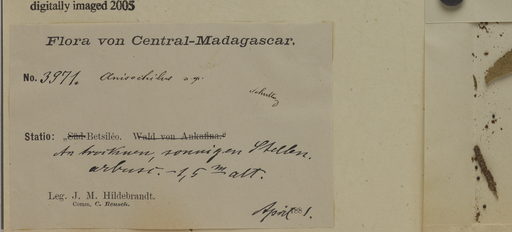 digitally imaged 2005
Flora von Central-Madagascar.
No. 3971. Anisochilus sp.
Statio: „Süd-Betsiléo. Wald von Ankafina."
An trocknen, sonnigen Stellen.
arbusc. - 1,5 m alt.
Leg. J. M. Hildebrandt.
Comm. C. Rensch.
April 1881.